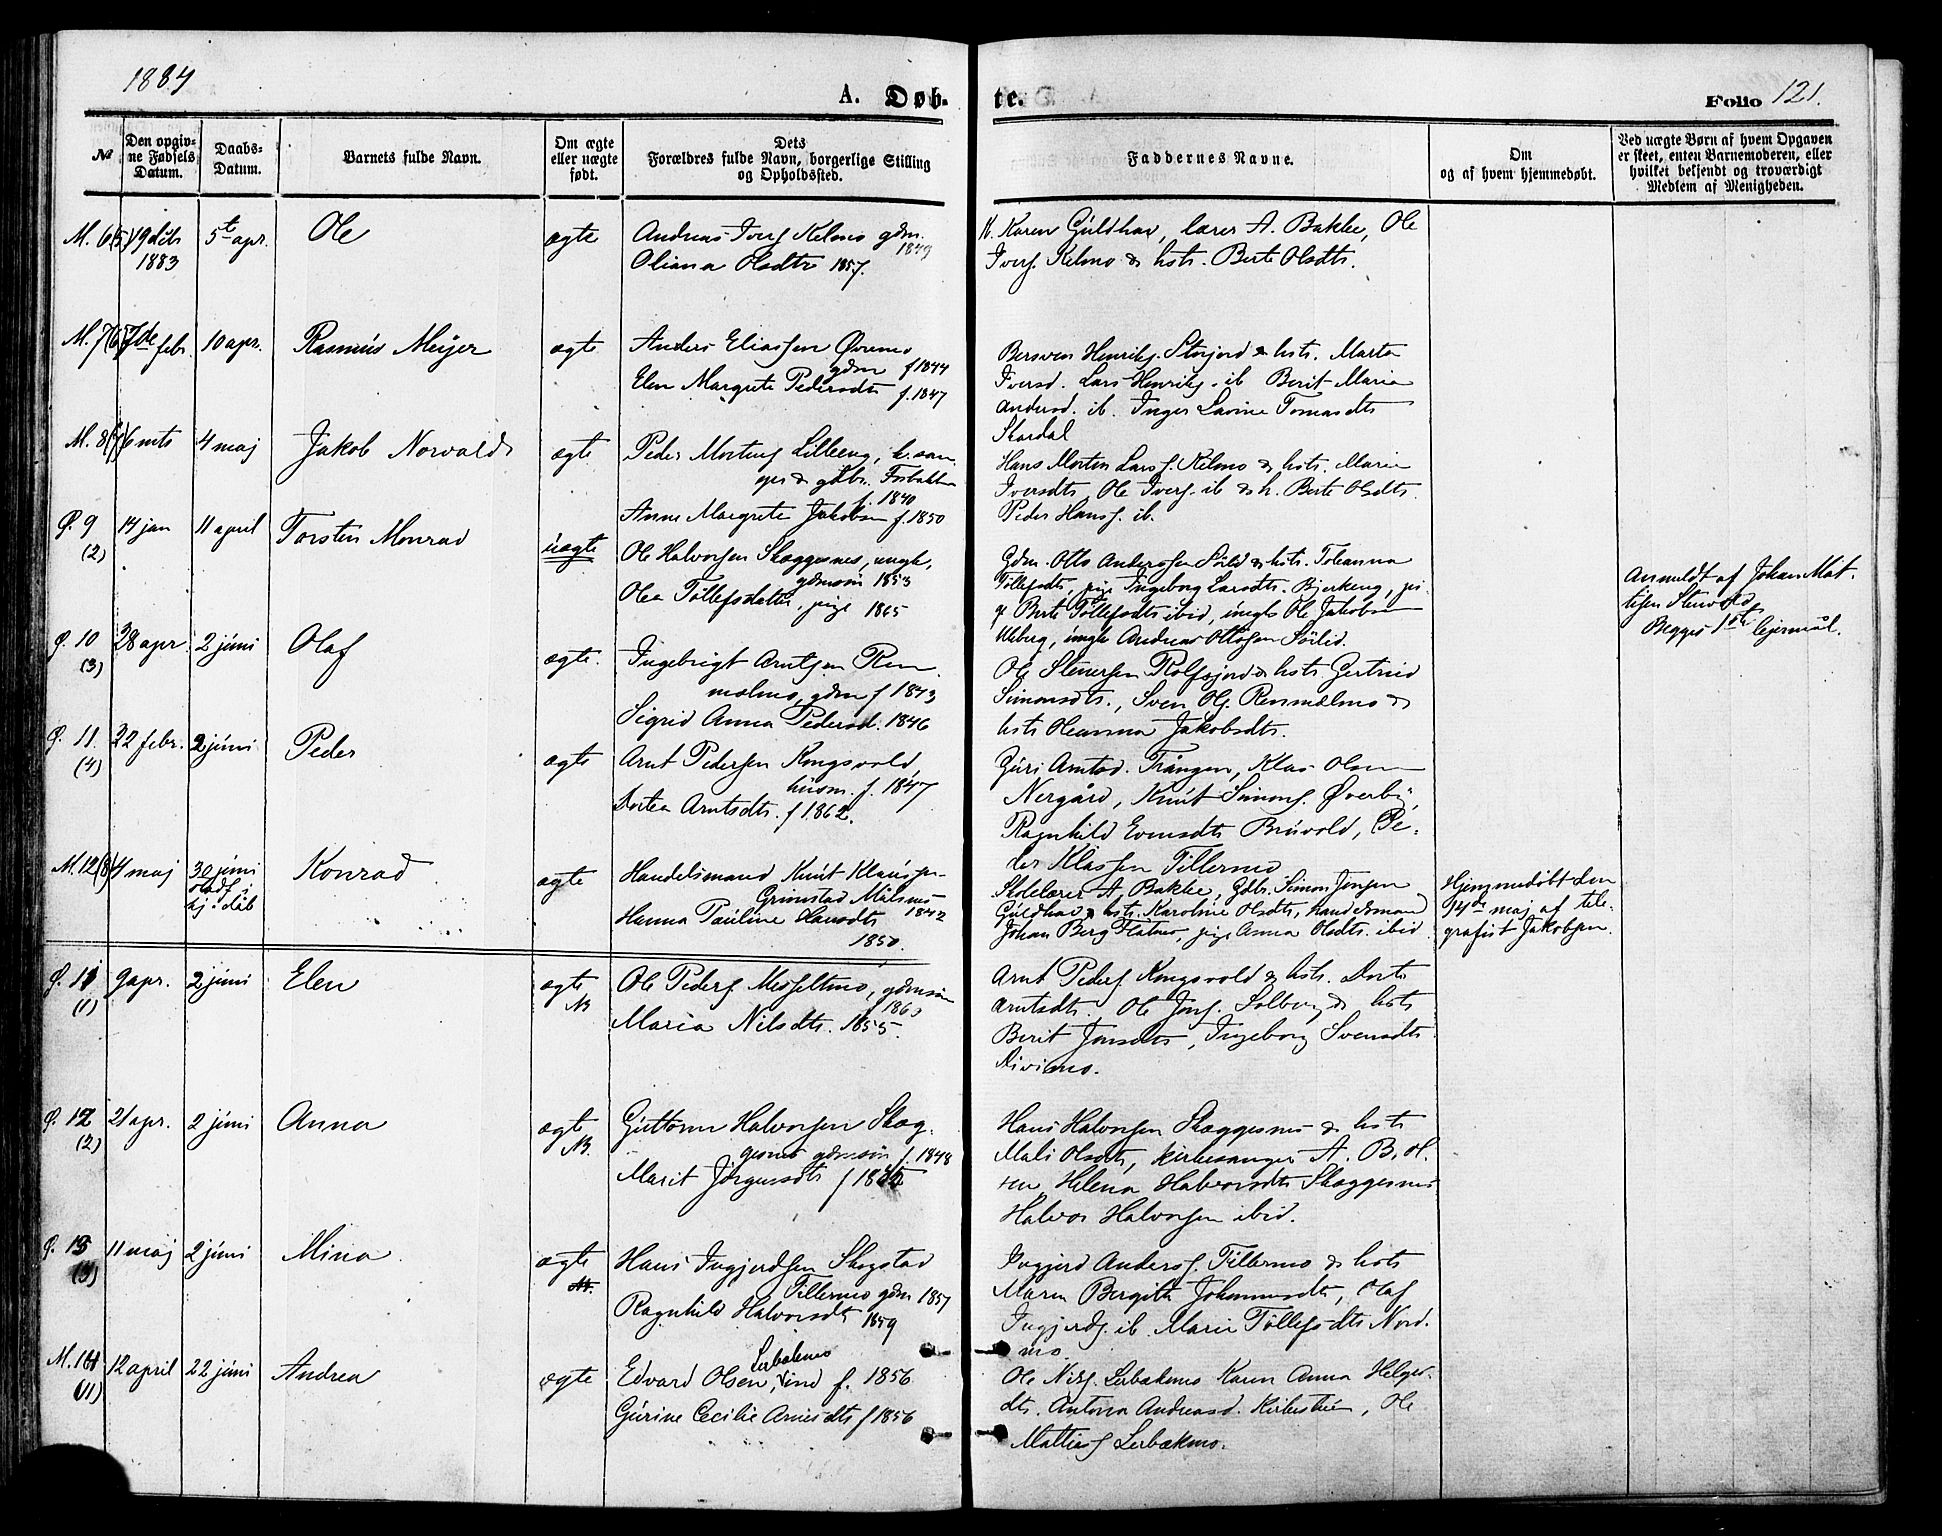 1884
A. Døb-
te.
Folio 121.
№
Den opgiv-
ne Fødsels
Datum.
Daabs-
Datum.
Barnets fulde Navn.
Om ægte
eller uægte
født.
Dets
Forældres fulde Navn, borgerlige Stilling
og Opholdssted.
Faddernes Navne.
Om
og af hvem hjemmedøbt.
Ved uægte Børn af hvem Opgaven
er skeet, enten Barnemoderen, eller
hvilket bekjendt og troværdigt
Medlem af Menigheden.
M. 6 (5) 19 1883
5te apr.
Ole
ægte
Andreas Kelmo gdm. 1849
Oliana Olsdtr 1857.
Karen Guldhav, lærer A. Bakke, Ole
Ivers. Kelmo & hstr. Berte Olsdtr.
M. 7 (6) 7de febr.
10 apr.
Rasmus Meijer
ægte
Anders Eliassen Øvremo
gdm f 1844
Elen Margrete Pedersdtr f. 1847
Storjord & hstr. Marta
Iversd. Lars Henriks. ib Berit Maria
Andersd. ib. Inger Lavine Tomasdtr
Skardal
M. 8 (7) 6 mts
4 maj
Jakob Norvald
ægte
Peder Lilleeng, k. san-
ger & gdbr. Fosbakken
f. 1840
Anne Margrete Jakobsen f. 1850
Hans Morten Lars. Kelmo & hstr. Marie
Iversdtr, Ole Ivers. ib & h. Berte Olsdtr.
Peder Hans. ib.
Ø. 9
(2)
14 jan
11 april
Torsten Monrad
uægte
Ole Halvorsen Skæggesnes, ungk,
gdmsøn 1853
Olea Tollefsdatter, pige 1865
Gdm. Otto Andersen Sølid & hstr. Johanna
Tollefsdtr, pige Ingeborg Larsdtr. Bjerkeng, pi-
ge Berte Tollefsdtr ibid, ungk Ole Jakobsen
ungk Andreas Ottosen Sølid.
Anmeldt af Johan Mat-
tisen Stenvold
Begges 1ste lejermål.
Ø. 10
(3)
28 apr
2 juni
Olaf
ægte.
Ingebrigt Arntsen Ren-
malmo, gdm f 1843
Sigrid Anna Pedersd. 1846
Ole Stenersen Rolfsjord & hstr Gertrud
Simonsdtr., Sven Ols. Rensmalmo &
hstr Oleanna Jakobsdtr.
Ø. 11.
(4)
22 febr.
2 juni
Peder
ægte
Arnt Pedersen Kongsvold,
husm. f. 1847
Dortea Arntsdtr. f 1862.
Guri Arntsd. Trången, Klas Olsen
Nergård, Knut Simons. Øverby,
Ragnhild Evensdtr Bruvold, Pe-
der Klassen Tillermo
M. 12 (8) 4 maj
30 juni
stadf. i
hj. dåb
Konrad
ægte
Handelsmand Knut Klausen
Grimstad Målsnes
1842
Hanna Pauline Hansdtr
1850.
Skolelærer A. Bakke, Gdbr. Simon Jensen
Guldhav & hstr. Karoline Olsdtr, handelsmand
Johan Berg Flatmo, pige Anna Olsdtr. ibid
Hjemmedøbt den
14de maj af tele-
grafist Jakobsen.
Ø. 11
(1)
9 apr.
2 juni
Elen
ægte
N.
Ole Peders. Messeltmo, gdmsøn
1860
Maria Nilsdtr. 1855.
Arnt Peders. Kongsvold & hstr. Dorte
Arntsdtr. Ole Jons. Solberg & hstr
Berit Jonsdtr, Ingeborg Svensdtr
Divimo.
Ø. 12
(2)
21 apr.
2 juni
Anna
ægte
N.
Guttorm Halvorsen Skæg-
gesnes gdmsøn f. 1848
Marit Jørgensdtr f
Hans Halvorsen Skæggesnes & hstr
Mali Olsdtr, kirkesanger A. B. Ol-
sen Helena Halvorsdtr Skæggesnes
Halvor Halvorsen ibid.
Ø. 13
(3)
11 maj
2 juni
Mina
ægte
N.
Hans Ingjerdsen Skogstad
Tillermo gdm 1857
Ragnhild Halvorsdtr 1859
Ingjerd Anders. Tillermo & hstr
Maren Bergitte Johannesdtr, Olaf
Ingjerds. ib. Marie Tollefsdtr Nord-
mo
M. 14
(11)
12 april
22 juni
Andrea
ægte
Lerbækmo
Edvard Olsen, ind. f. 1856
Gurine Cecilie Arnesdtr f 1856
Ole Nils. Lerbækmo Karen Anna Helges-
dtr. Antona Andreasd. Ole
Mattias. Lerbækmo.